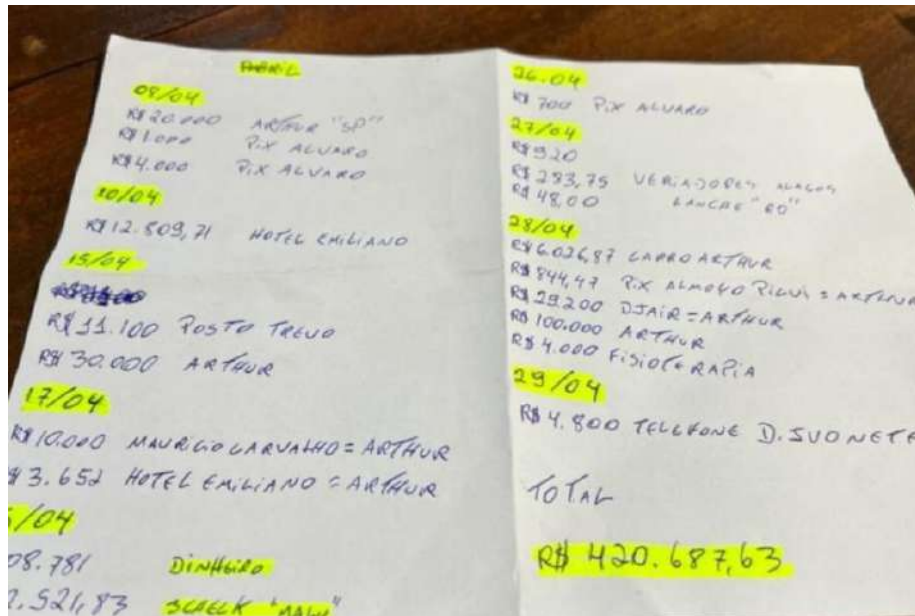 ABRIL
09/04
R$ 20.000 ARTHUR "SP"
R$ 1.000 PIX ALVARO
R$ 4.000 PIX ALVARO
10/04
R$ 12.809,71 HOTEL EMILIANO
15/04
R$ 11.100 POSTO TREVO
R$ 30.000 ARTHUR
17/04
R$ 10.000 MAURICIO CARVALHO = ARTHUR
$ 3.652 HOTEL EMILIANO = ARTHUR
/04
08.781 DINHEIRO
2.521,83
26.04
R$ 700 PIX ALVARO
27/04
R$ 920
R$ 283,75 VERIADORES
R$ 48,00 LANCHE
28/04
R$ 6.026,87 CARRO ARTHUR
R$ 844,47 PIX ALMOÇO = ARTHUR
R$ 29.200 DJAIR = ARTHUR
R$ 100.000 ARTHUR
R$ 4.000 FISIOTERAPIA
29/04
R$ 4.800 TELEFONE D. IVONETE
TOTAL
R$ 420.687,63